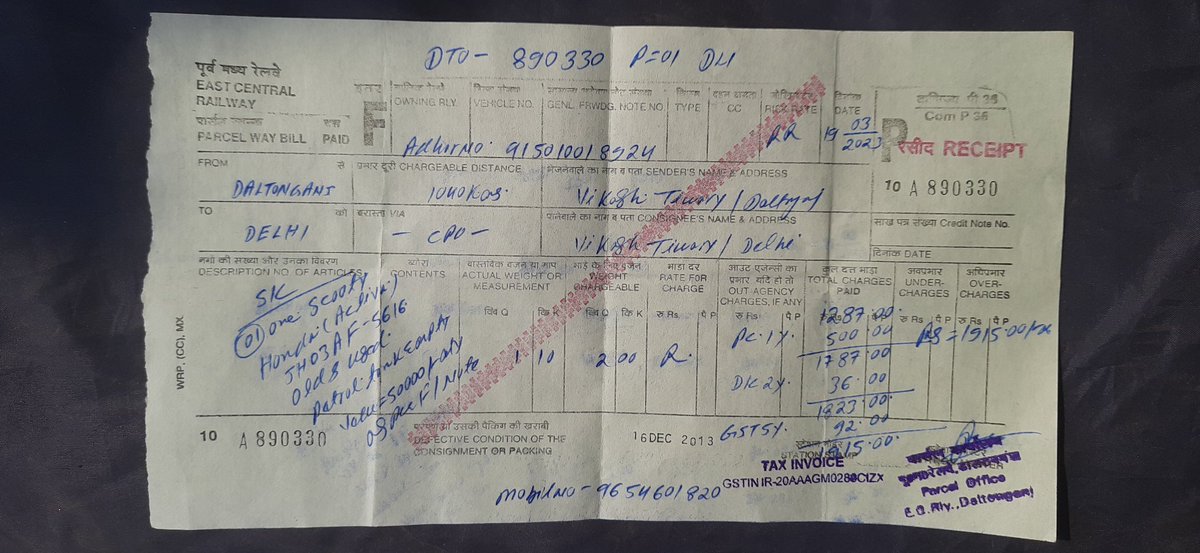 DTO - 890330 P=01 DLI
पूर्व मध्य रेलवे
EAST CENTRAL
RAILWAY
PARCEL WAY BILL
PAID
F
OWNING RLY.
VEHICLE NO.
GENL. FRWDG. NOTE NO.
TYPE
CC
RATE
दिनांक
DATE
RR
19 03/2023
P
Com P 36
रसीद RECEIPT
10 A 890330
Adhir No. 915010018924
FROM से
DALTONGANJ
प्रभार दूरी CHARGEABLE DISTANCE
1040
भेजनेवाले का नाम व पता SENDER'S NAME & ADDRESS
Vikash Tiwary / Daltonganj
TO को
DELHI
बरास्ता VIA
पानेवाले का नाम व पता CONSIGNEE'S NAME & ADDRESS
Vikash Tiwary / Delhi
साख पत्र संख्या Credit Note No.
दिनांक DATE
नगों की संख्या और उनका विवरण
DESCRIPTION NO. OF ARTICLES
ब्योरा
CONTENTS
वास्तविक वजन या माप
ACTUAL WEIGHT OR
MEASUREMENT
भाड़े के लिए वजन
WEIGHT
CHARGEABLE
भाड़ा दर
RATE FOR
CHARGE
आउट एजन्सी का
प्रभार यदि हो तो
OUT AGENCY
CHARGES, IF ANY
कुल दत्त भाड़ा
TOTAL CHARGES
PAID
अवप्रभार
UNDER-
CHARGES
अधिप्रभार
OVER-
CHARGES
SK
(01) one Scooty
Honda (Activa)
JH03AF-5616
old & used.
Petrol tank empty
Value = 50000/- only
as per F/Note
1 10
2 00
R.
1287.00
PC. 1%
500.00
1787.00
DK 2%
36.00
1823.00
GST 5%
92.00
RS = 1915.00
WRP, (CC), MX
10 A 890330
अथवा उसकी पैकिंग की खराबी
DEFECTIVE CONDITION OF THE
CONSIGNMENT OR PACKING
16 DEC 2013
TAX INVOICE
GSTIN IR-20AAAGM0289C1ZX
Parcel Office
E.C.Rly., Daltonganj
Mobil No - 9654601820